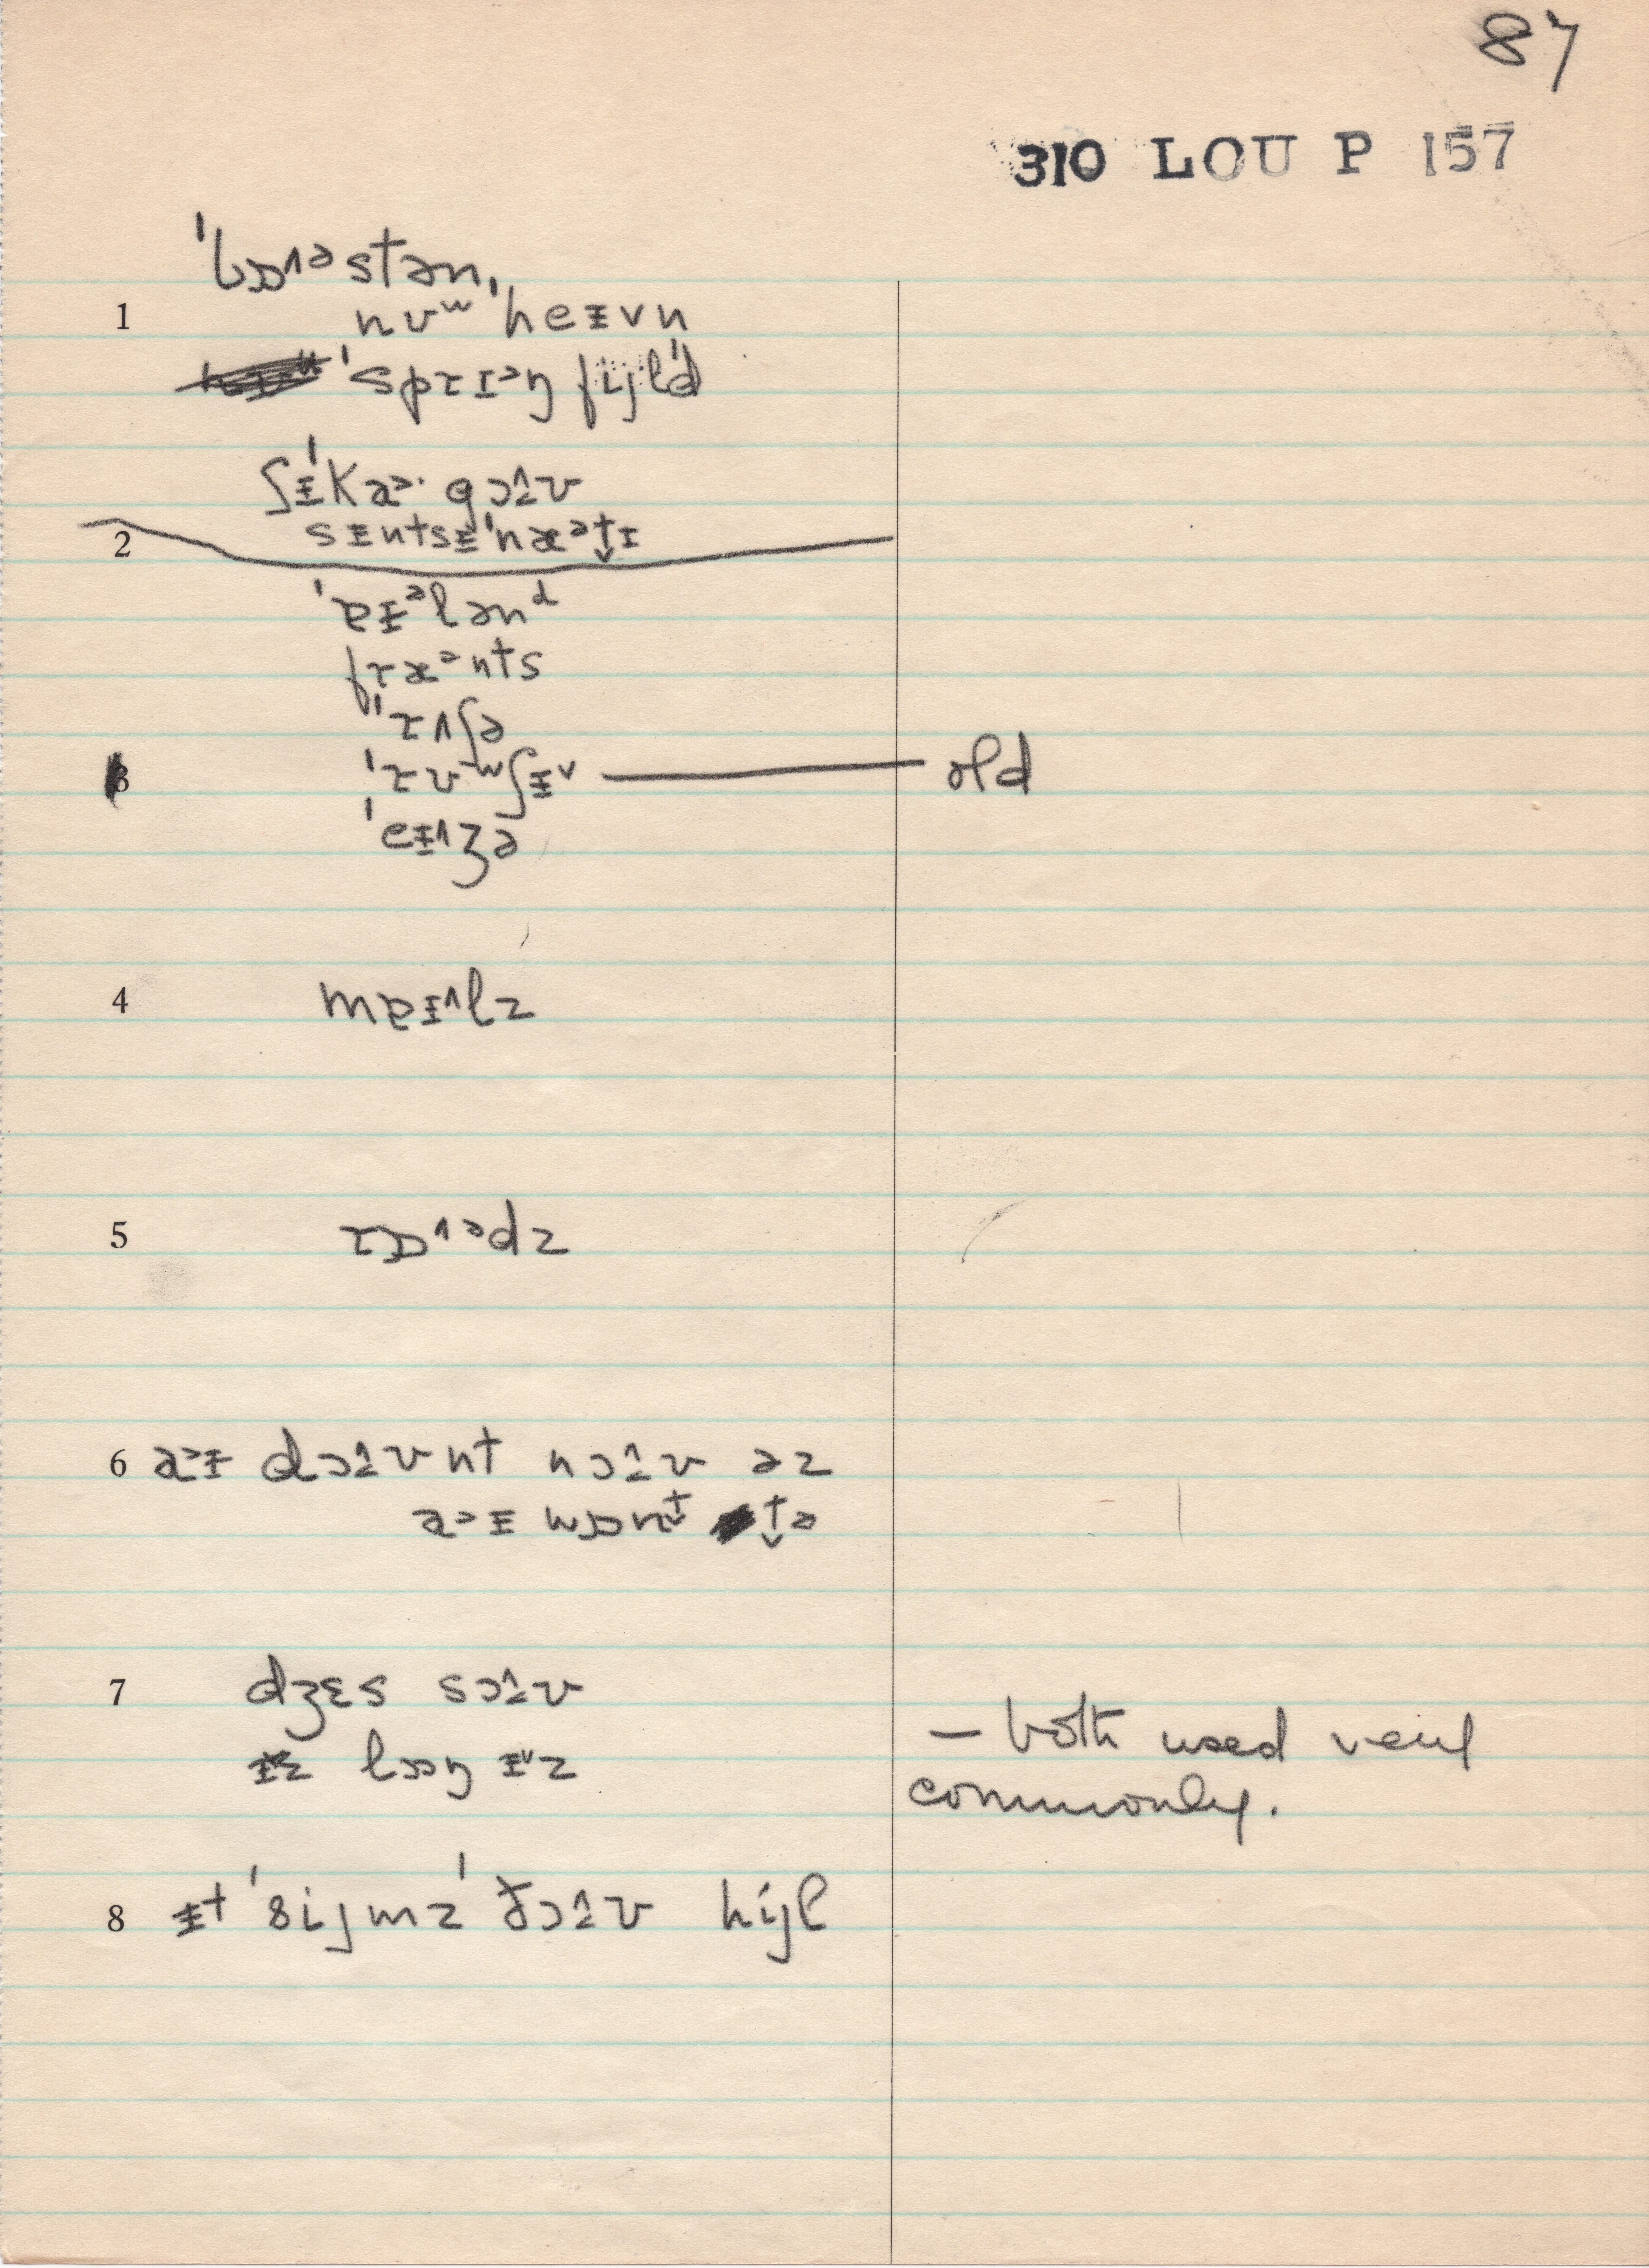 87
310 LOU P 157
ˈbɒ˄ᵊstən,
1 nʊʷˈheᵻvn
ˈsprɪᵊŋfijld
ʃᵻˈka˃·gɔ˔ʊ
2 sᵻntsᵻˈnæᵊt̬ɪ
ˈɐᵻᵊlənᵈ
fræᵊnts
ˈrʌʃə
3 ˈrʊʷʃᵻ˅ — old
ˈeᵻ˄ʒə
4 mɐᵻ˄lz
5 rɒ˄ᵊdz
6 a˃ᵻ dɔ˔ʊnt nɔ˔ʊ əz
a˃ᵻ wɒnt̬ t̬ə
7 dʒɛs sɔ˔ʊ
lɒŋ ᵻ˅z
— both used very
commonly.
8 ᵻt ˈsijmzˈ ðɔ˔ʊ hijl